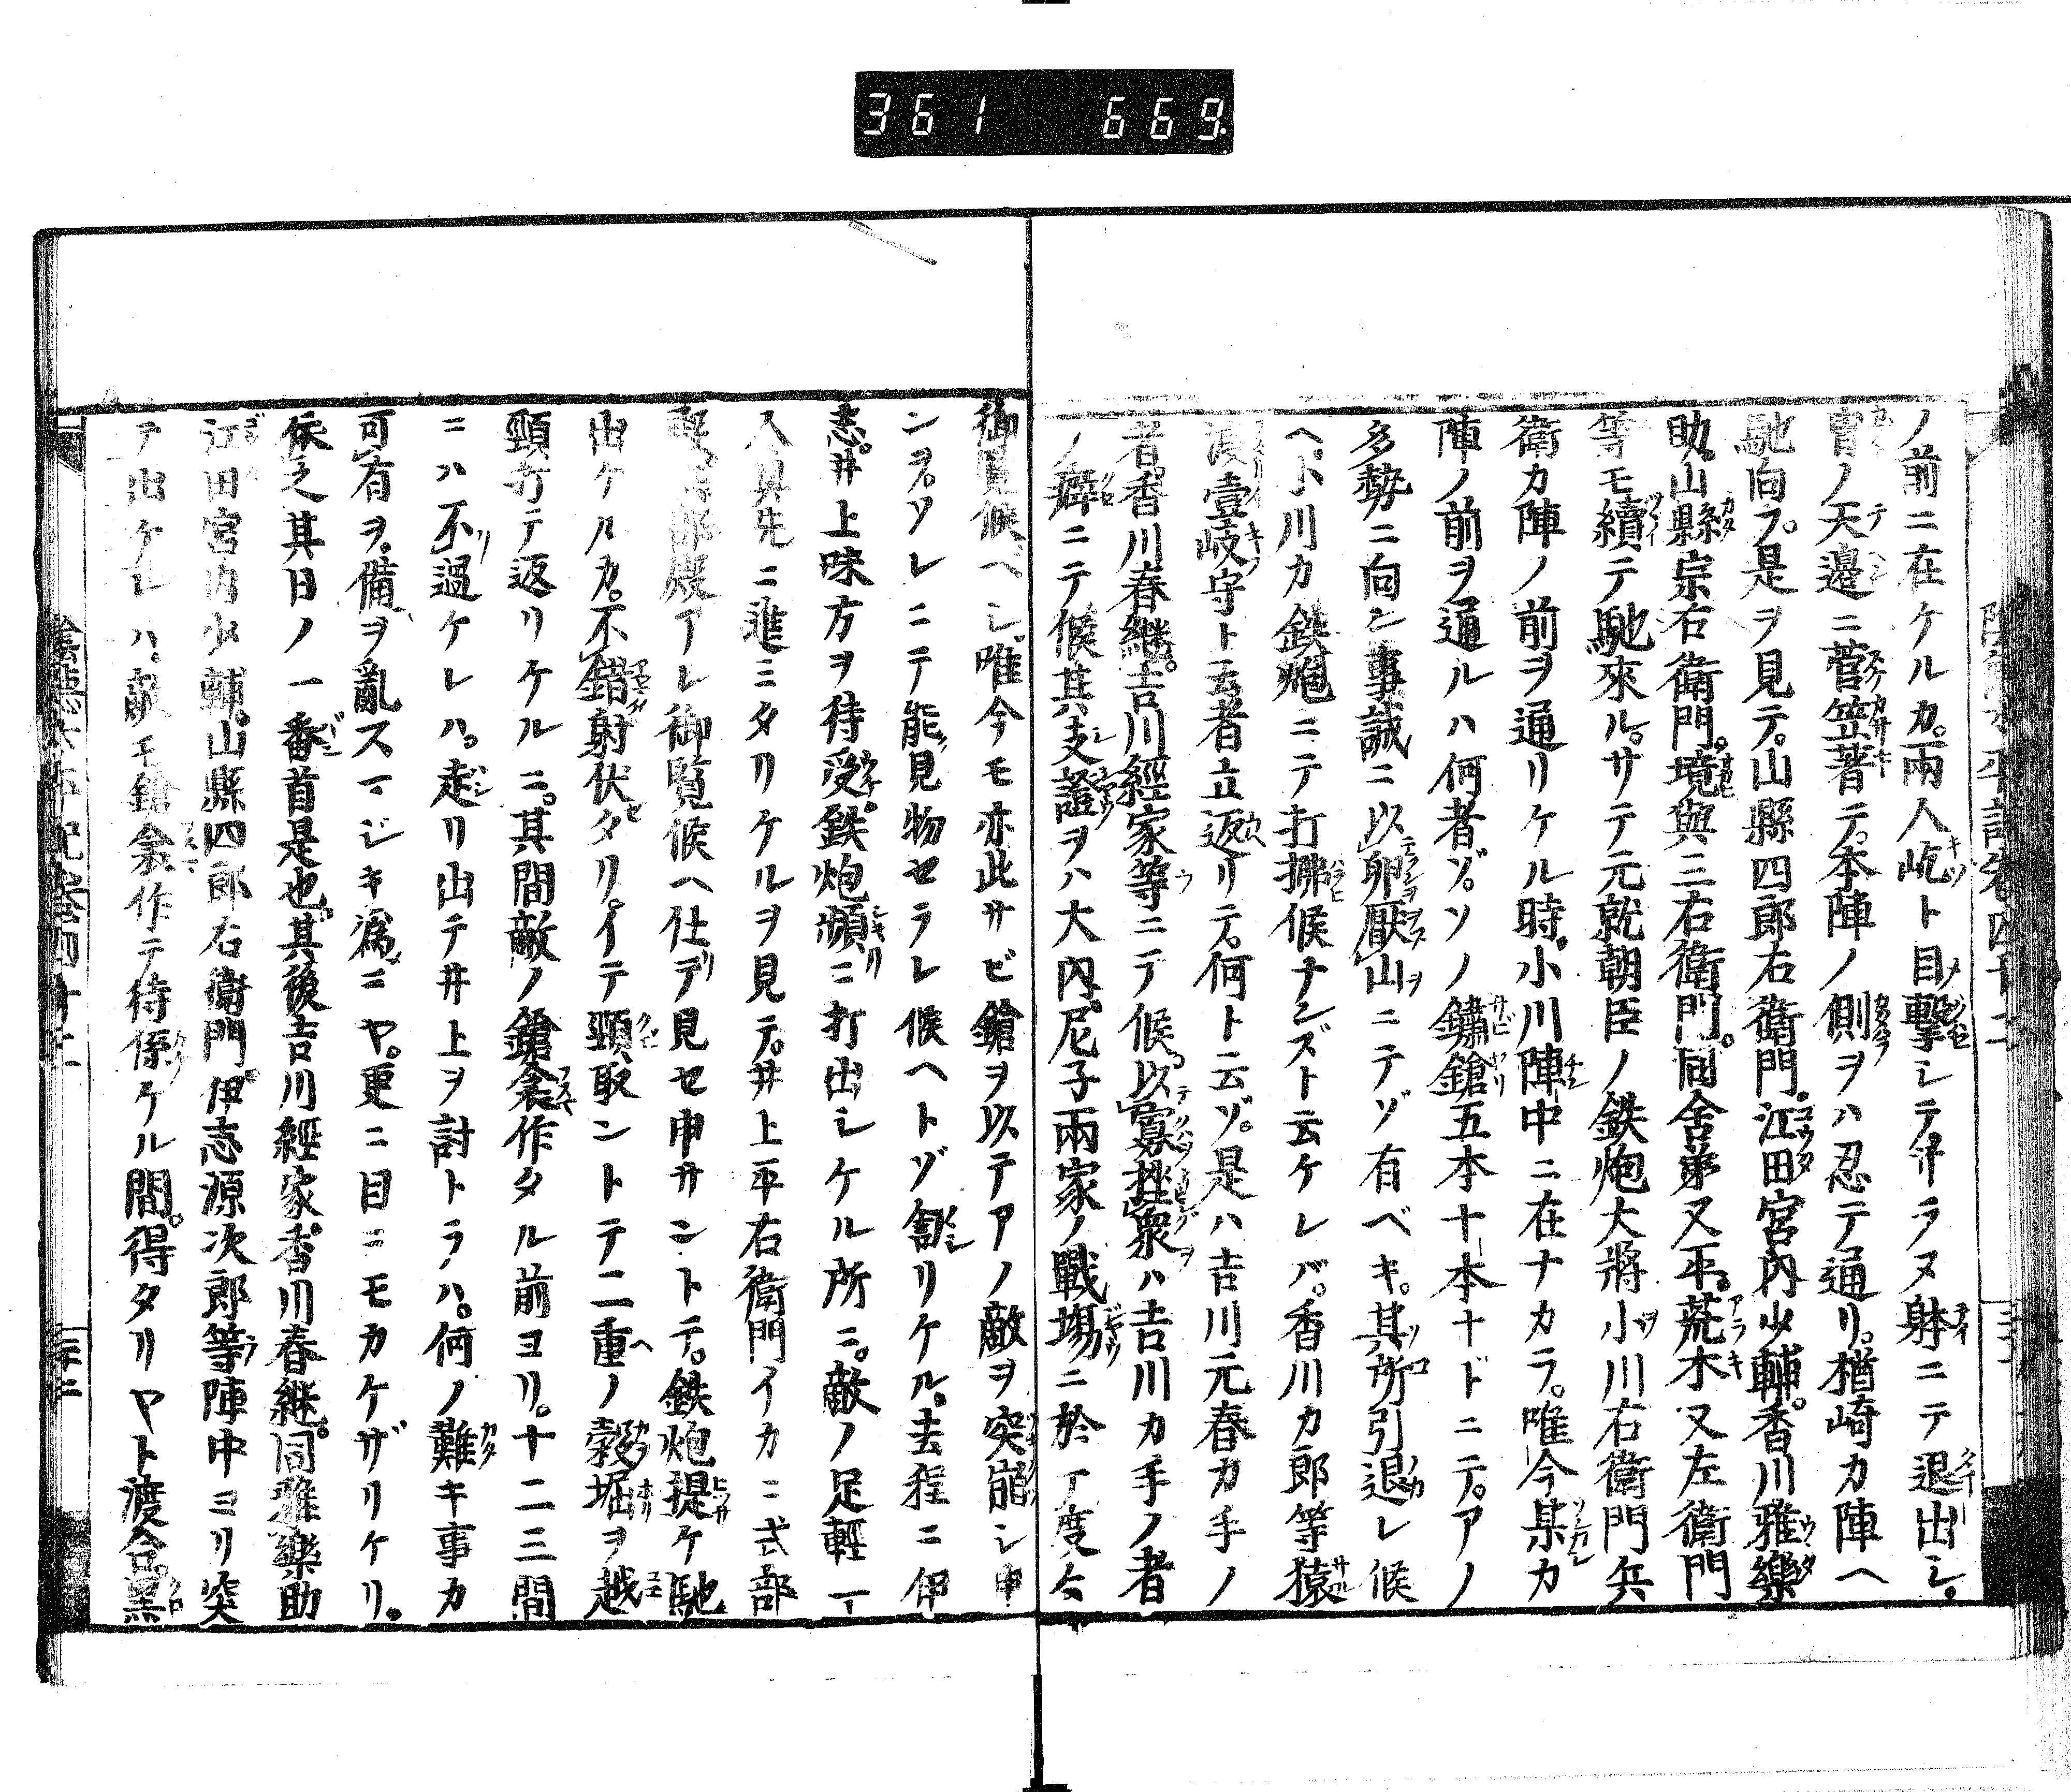 361 669
ノ前ニ在ケルカ。兩人屹ト目撃シテ有ラヌ躰ニテ退出シ。
冑ノ天邉ニ菅笠著テ。本陣ノ側ヲハ忍テ通リ。楢崎カ陣ヘ
馳向フ。是ヲ見テ。山縣四郎右衛門。江田宮内少輔。香川雅樂
助。山縣宗右衛門。境與三右衛門。同舍弟又平。荒木又左衛門
等モ續テ馳來ル。サテ元就朝臣ノ鉄炮大將小川右衛門兵
衛カ陣ノ前ヲ通リケル時。小川陣中ニ在ナカラ。唯今某カ
陣ノ前ヲ通ルハ何者ゾ。ソノ鏽鎗五本十本ナドニテ。アノ
多勢ニ向ン事誠ニ以卵厭山ニテゾ有ベキ。其所引退レ候
ヘ。小川カ鉄炮ニテ打拂候ナンズト云ケレバ。香川カ郎等猿
渡壹岐守ト云者立返リテ。何ト云ゾ。是ハ吉川元春カ手ノ
者。香川春継。吉川經家等ニテ候。以寡挫衆ハ吉川カ手ノ者
ノ癖ニテ候其支證ヲハ大内。尼子兩家ノ戰塲ニ於テ度々
御覧候ヘシ。唯今モ亦此サビ鎗ヲ以テアノ敵ヲ突崩シ申
ンヲ。ソレニテ能見物セラレ候ヘトゾ詈リケル。去程ニ伊
志。井上味方ヲ待受。鉄炮頻ニ打出シケル所ニ。敵ノ足軽一
人眞先ニ進ミタリケルヲ見テ。井上平右衛門イカニ式部
殿。郎殿アレ御覧候ヘ仕テ見セ申サントテ。鉄炮提ケ馳
出ケルカ。不錯射伏タリ。イテ頸取ントテ二重ノ穀堀ヲ越
頸打テ返リケルニ。其間敵ノ鎗衾作タル前ヨリ。十二三間
ニハ不過ケレハ。走リ出テ井上ヲ討トラハ。何ノ難キ事カ
可有ヲ。備ヲ亂スマジキ爲ニヤ。更ニ目ニモカケザリケリ。
依之其日ノ一番首是也。其後吉川經家。香川春継。同雅樂助
江田宮内少輔。山縣四郎右衛門。伊志源次郎等陣中ヨリ突
テ出ケレハ。敵モ鎗衾作テ待係ケル間。得タリヤト渡合。黒